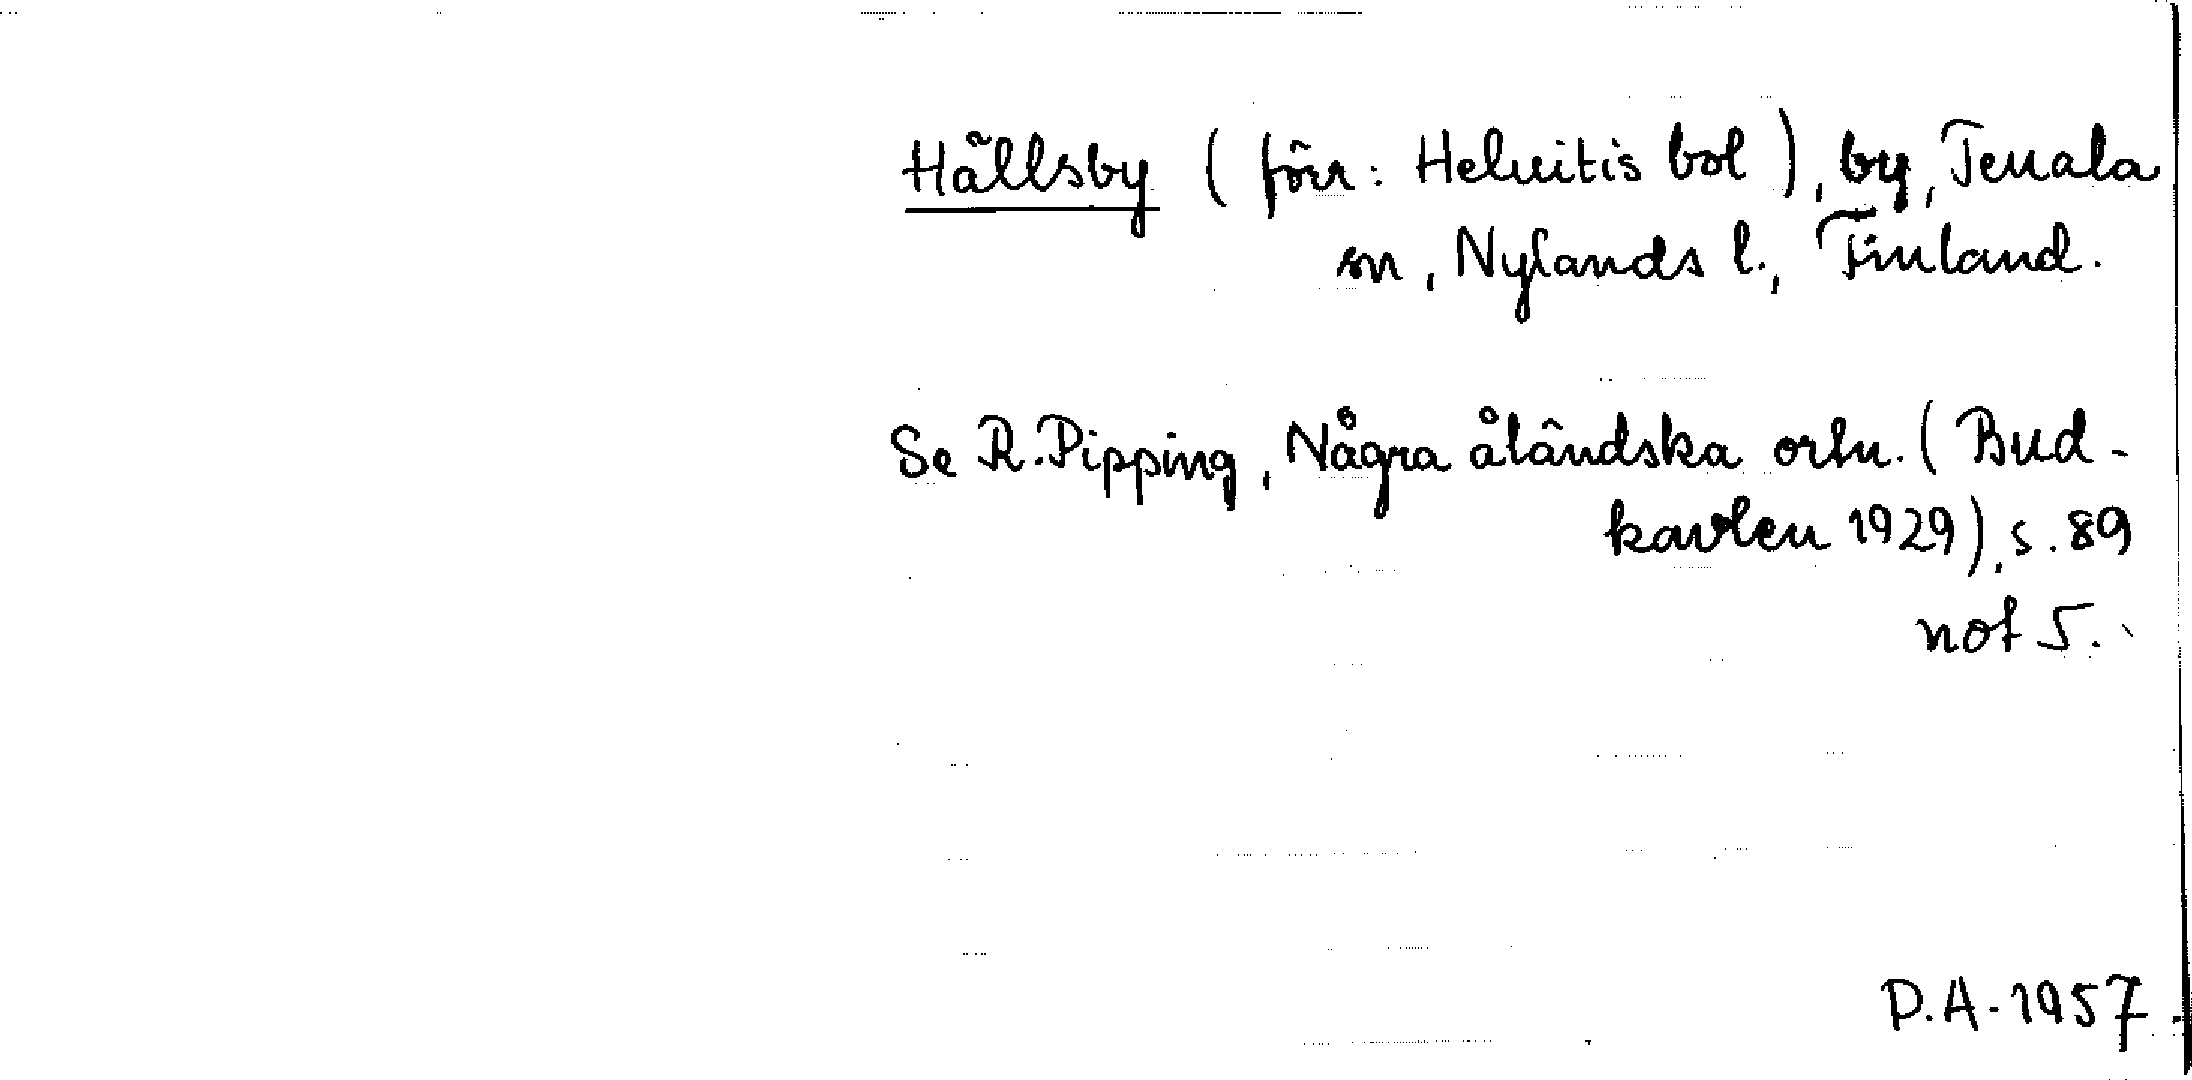 Hällsby (förr: Helvitis bol), by, Tenala
sn, Nylands l., Finland.
Se R. Pipping, Några åländska ortn. (Bud-
kavlen 1929), s. 89
not 5.
P.A. 1957.